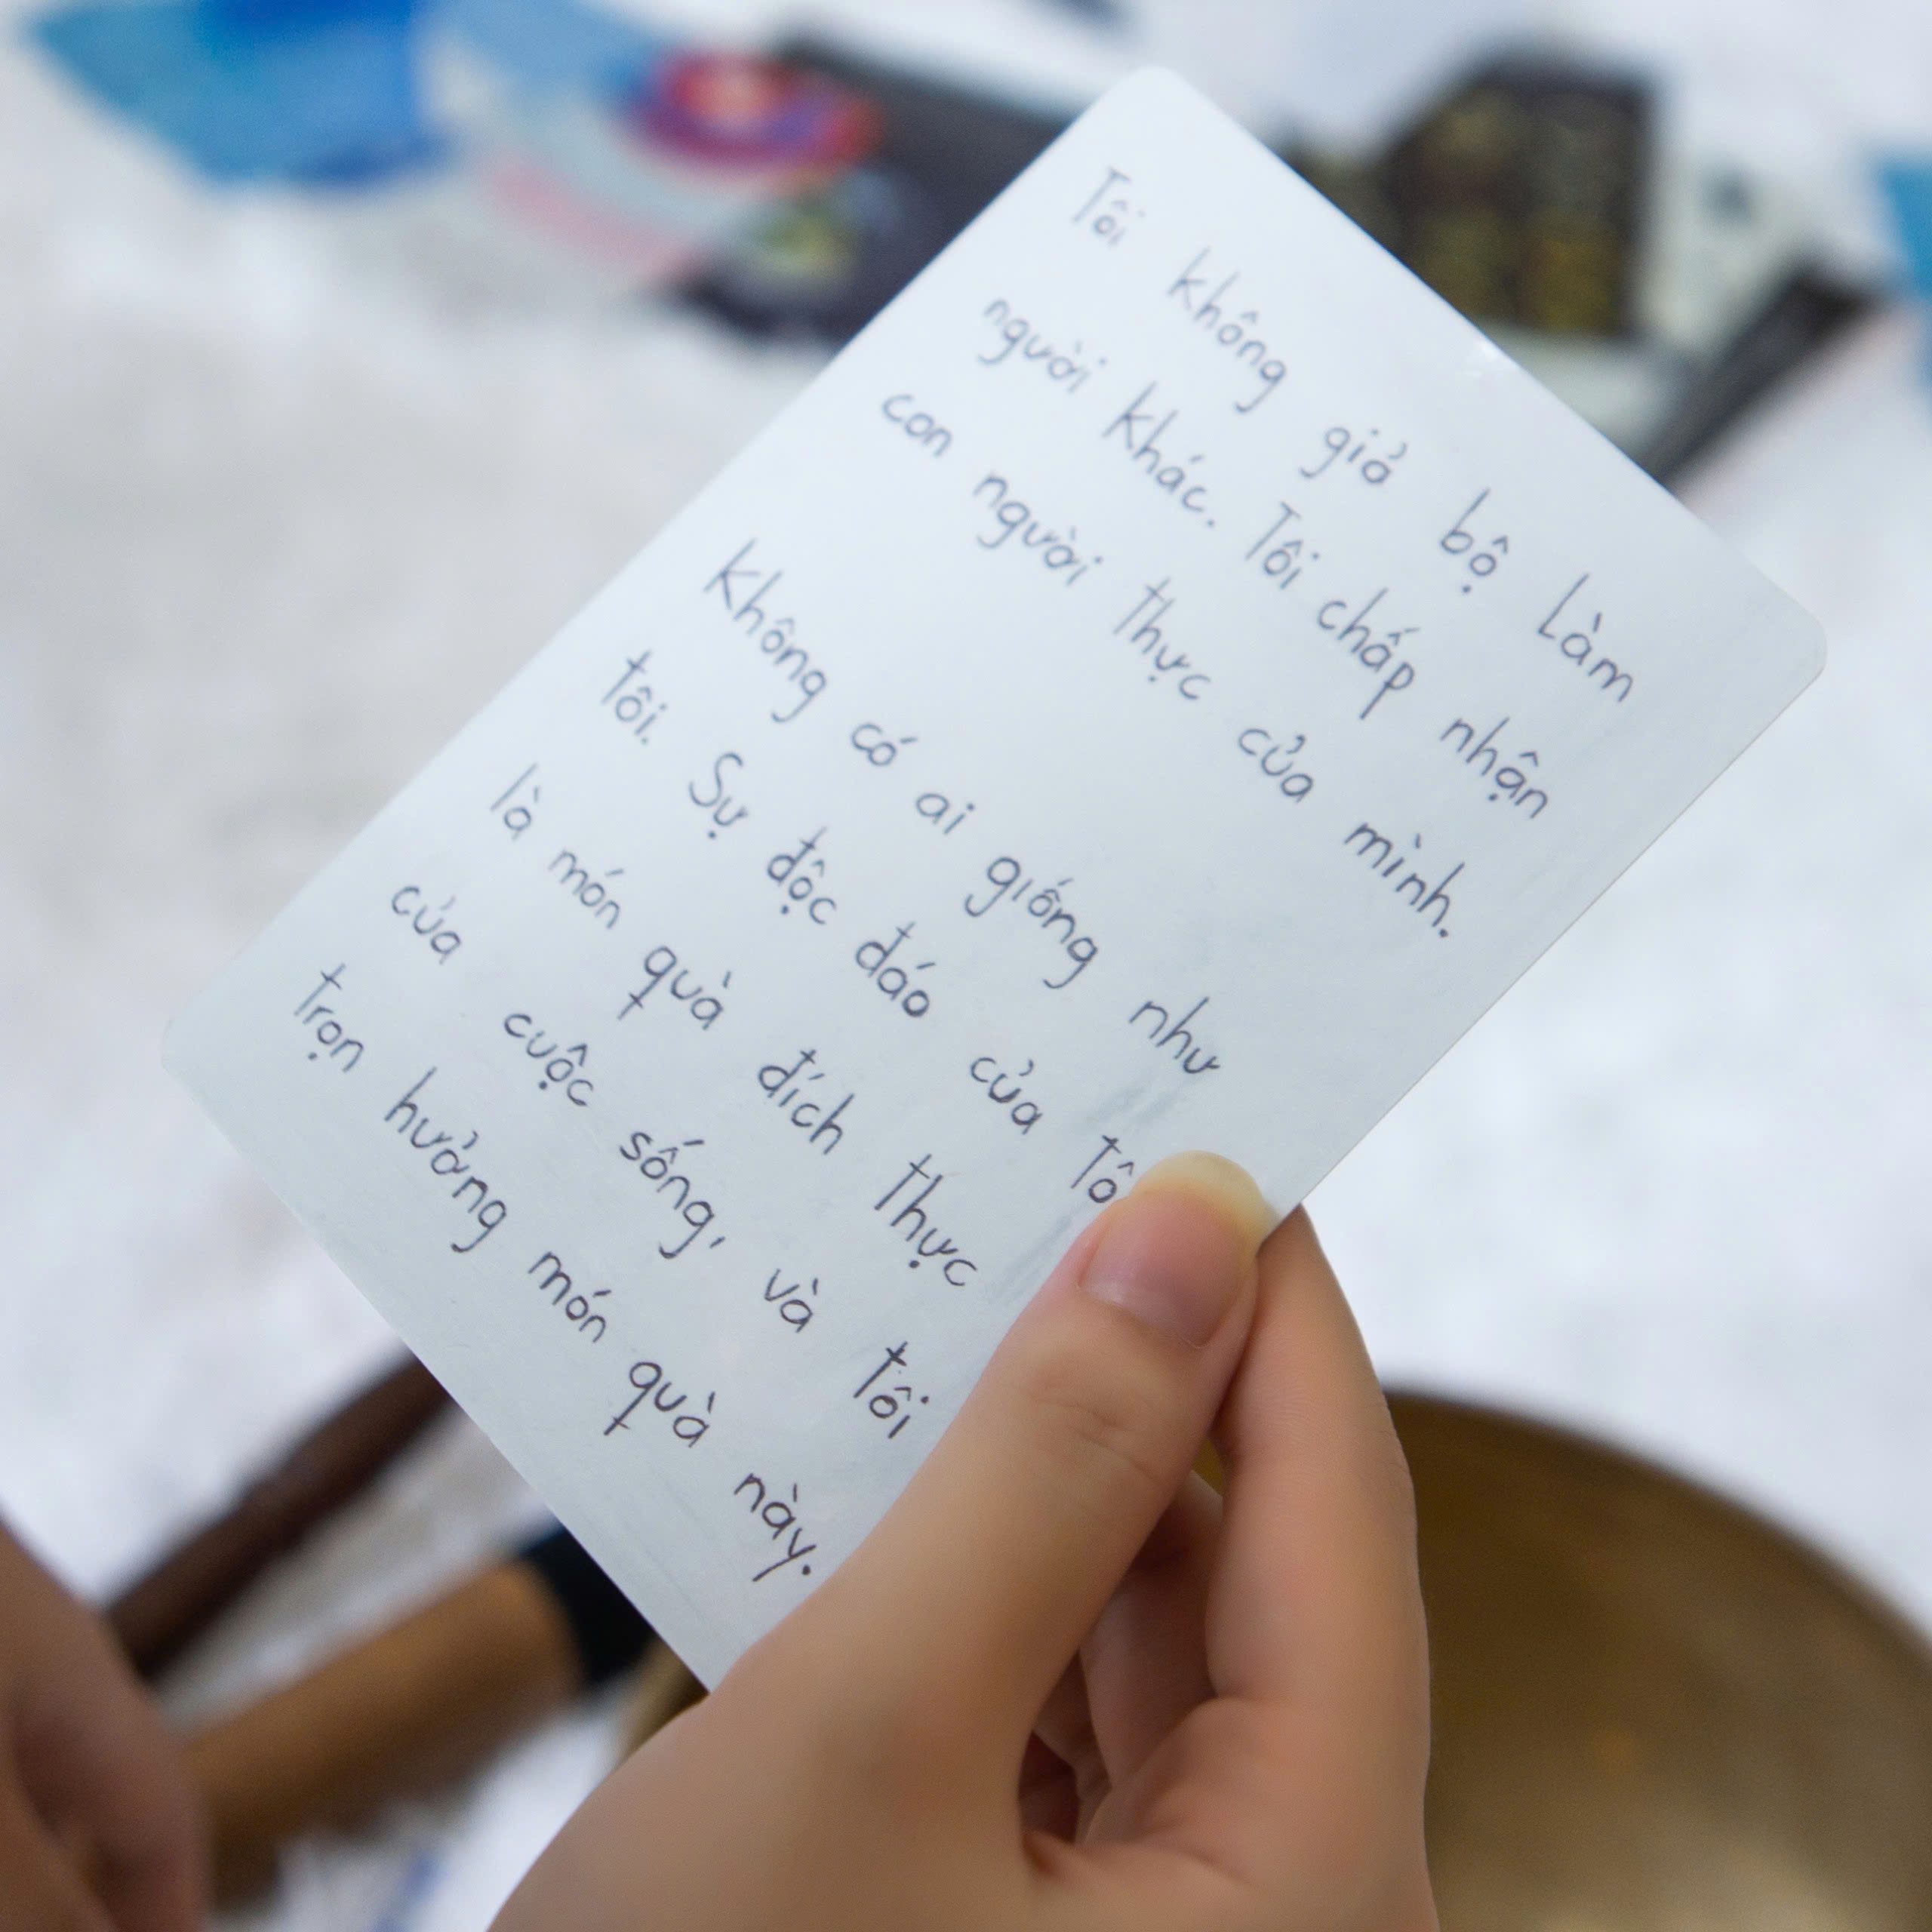 Tôi không giả bộ làm
người khác. Tôi chấp nhận
con người thực của mình.
Không có ai giống như
tôi. Sự độc đáo của Tô
là món quà đích thực
của cuộc sống, và tôi
trọn hưởng món quà này.